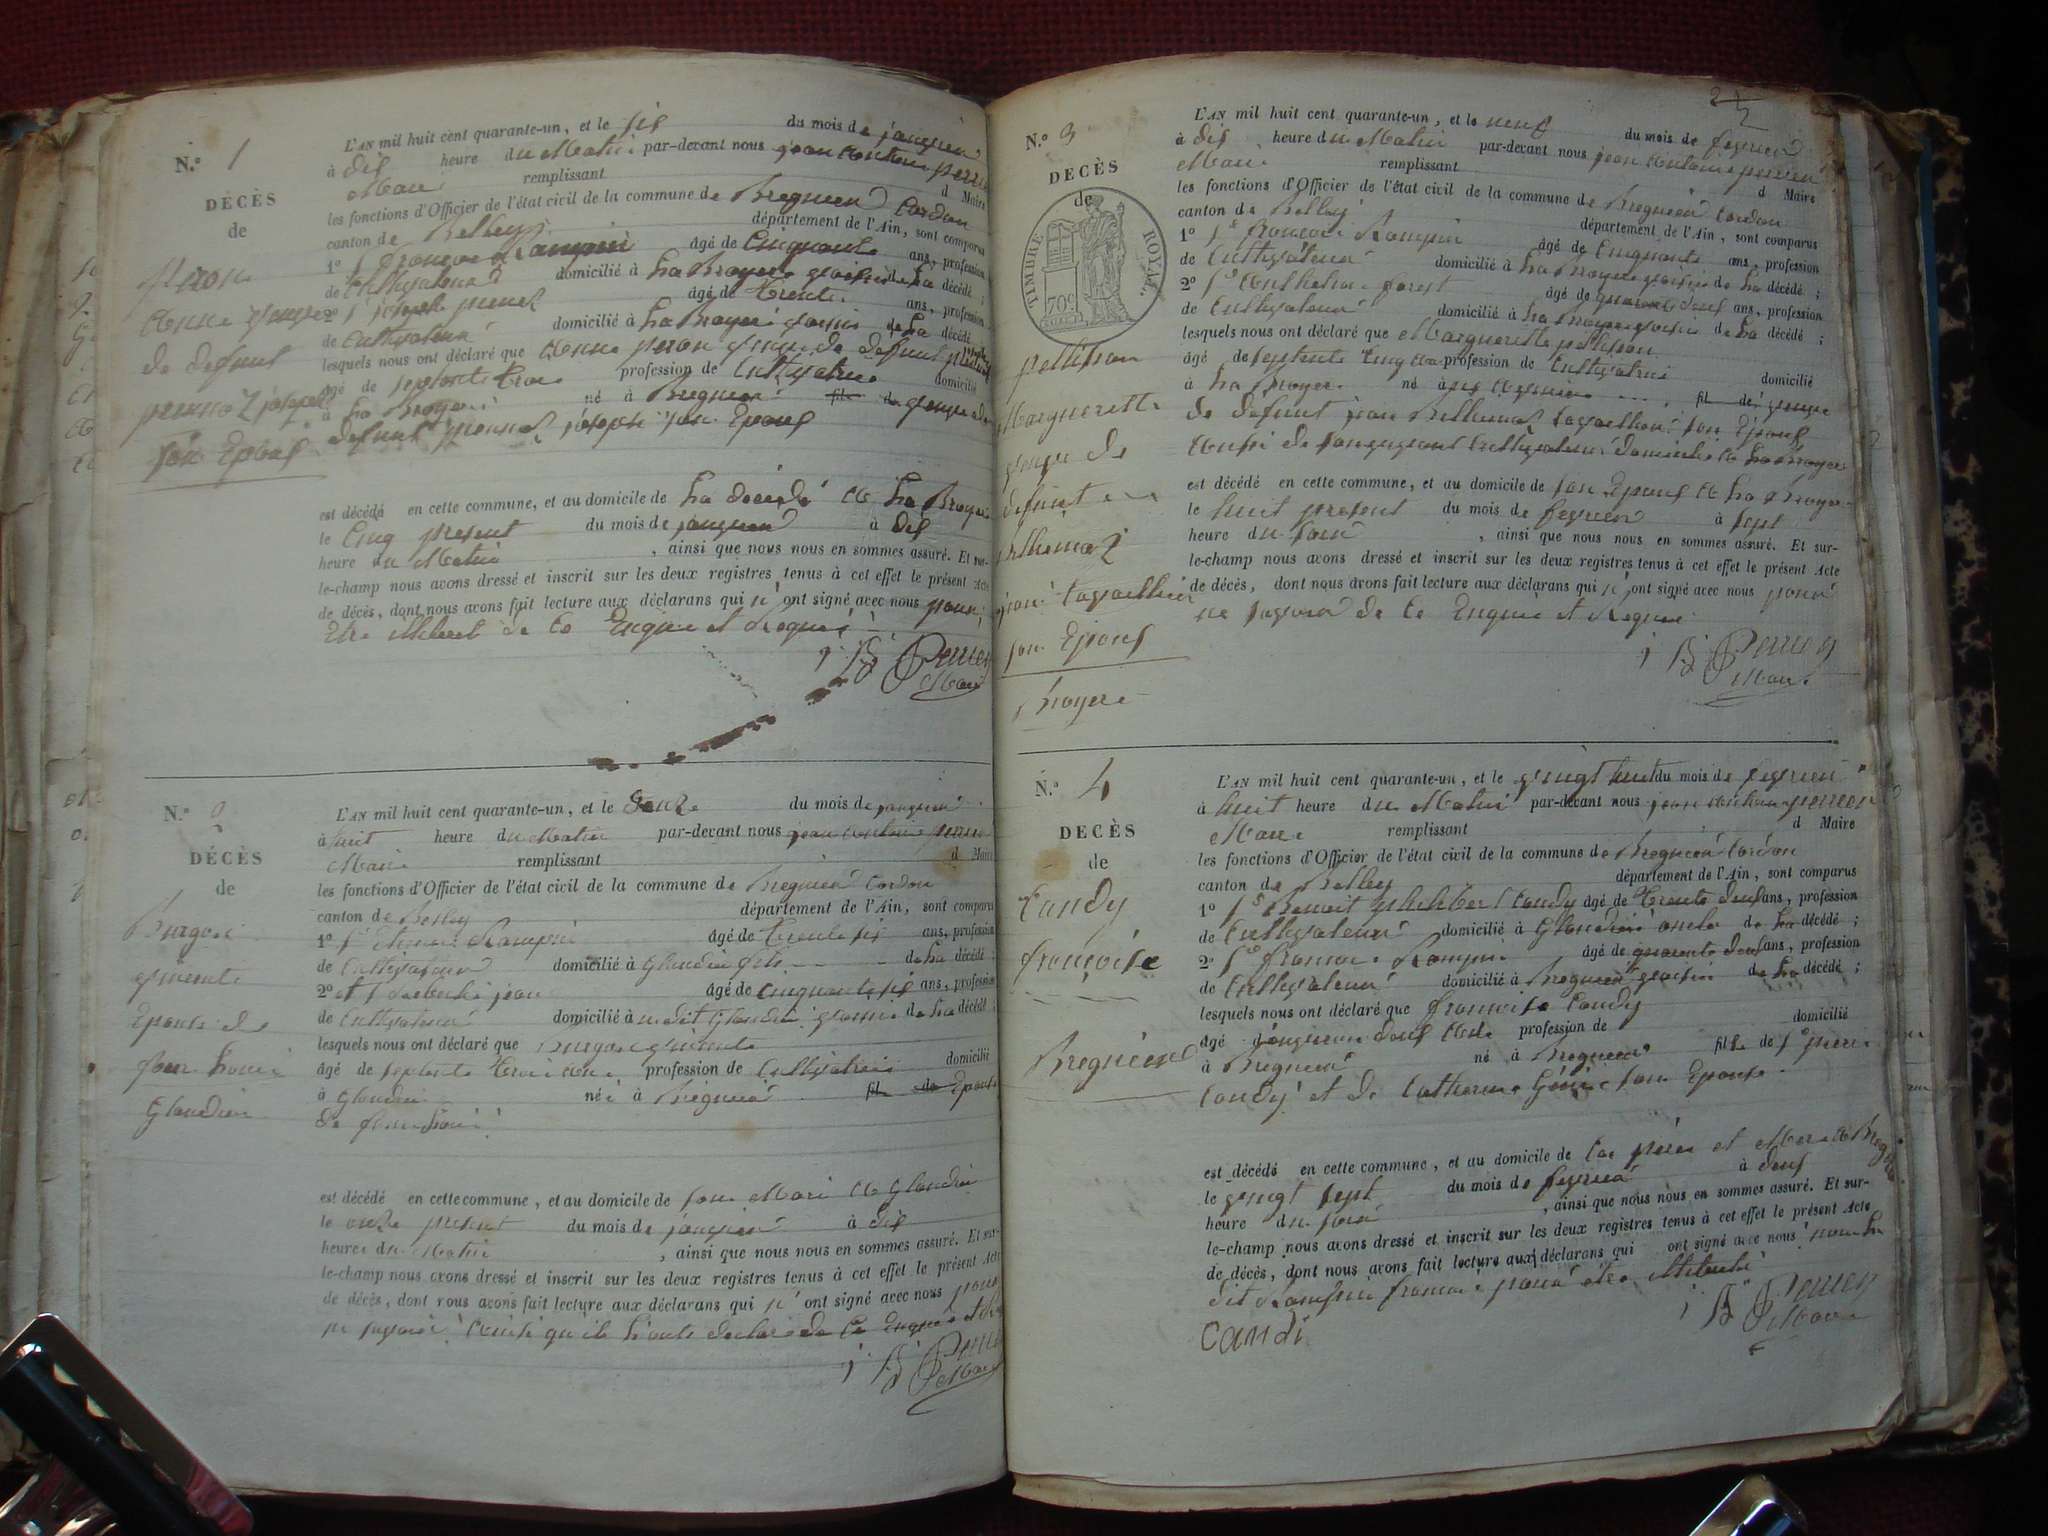 N.º 1
DÉCÈS
de
peron
Anne veuve
de defunt
son Epous
L'AN mil huit cent quarante-un, et le six du mois de janvier
à dix heure du Matin par-devant nous jean
Maire remplissant d Maire
les fonctions d'Officier de l'état civil de la commune de Bregnier Cordon
canton de Belley département de l'Ain, sont comparus
1º âgé de Cinquante ans, profession
de Cultivateur domicilié à La Bruyere de la décédé ;
2º joseph âgé de Trente ans, profession
de Cultivateur domicilié à La Bruyere de la décédé
lesquels nous ont déclaré que Anne peron veuve de defunt
âgé de septante trois profession de Cultivatrice domicilié
à La Bruyere né à Bregnier fil de veuve de
defunt joseph son Epous
est décédé en cette commune, et au domicile de La décédé a La Bruyere
le Cinq present du mois de janvier à dix
heure du Matin , ainsi que nous nous en sommes assuré. Et sur-
le-champ nous avons dressé et inscrit sur les deux registres tenus à cet effet le présent Acte
de décès, dont nous avons fait lecture aux déclarans qui n' ont signé avec nous pour
Etre illiteré de Ce Enquis et Requis
Maire
N.º 2
DÉCÈS
de
Epouse de
Glandieu
L'AN mil huit cent quarante-un, et le Douze du mois de janvier
à huit heure du Matin par-devant nous jean
Maire remplissant d Maire
les fonctions d'Officier de l'état civil de la commune de Bregnier Cordon
canton de Belley département de l'Ain, sont comparus
1º âgé de trente six ans, profession
de Cultivateur domicilié à Glandieu de La décédé
2º jean âgé de Cinquante six ans, profession
de Cultivateur domicilié à Glandieu de la décédé ;
lesquels nous ont déclaré que
âgé de septante trois ans profession de Cultivatrice domicilié
à Glandieu né à Bregnier fil de Epouse
de
est décédé en cette commune, et au domicile de son Mari a Glandieu
le onze present du mois de janvier à dix
heure du Matin , ainsi que nous nous en sommes assuré. Et sur-
le-champ nous avons dressé et inscrit sur les deux registres tenus à cet effet le présent Acte
de décès, dont nous avons fait lecture aux déclarans qui n' ont signé avec nous pour
ne savoir ainsi qu'ils L'ont declaré de Ce Enquis
Maire
N.º 3
DECÈS
de
TIMBRE ROYAL.
70c
pellisson
Marguerette
veuve de
defunt
jean
son Epous
Bruyere
L'AN mil huit cent quarante-un, et le neuf du mois de fevrier
à dix heure du Matin par-devant nous jean
Maire remplissant d Maire
les fonctions d'Officier de l'état civil de la commune de Bregnier Cordon
canton de Belley département de l'Ain, sont comparus
1º françois âgé de Cinquante ans, profession
de Cultivateur domicilié à La Bruyere voisin de La décédé ;
2º forest âgé de quarante deux ans, profession
de Cultivateur domicilié à La Bruyere voisin de La décédé ;
lesquels nous ont déclaré que Marguerette pellisson
âgé de septente Cinq ans profession de Cultivatrice domicilié
à La Bruyere né à fil de veuve
de defunt jean son Epous
aussi de Cultivateur domicilié a La Bruyere
est décédé en cette commune, et au domicile de son Epous a La Bruyere
le huit present du mois de fevrier à sept
heure du soir , ainsi que nous nous en sommes assuré. Et sur-
le-champ nous avons dressé et inscrit sur les deux registres tenus à cet effet le présent Acte
de décès, dont nous avons fait lecture aux déclarans qui n' ont signé avec nous pour
ne savoir de Ce Enquis et Requis
Maire
N.º 4
DECÈS
de
Candy
françoise
Bregnier
L'AN mil huit cent quarante-un, et le vingt huit du mois de fevrier
à huit heure du Matin par-devant nous jean
Maire remplissant d Maire
les fonctions d'Officier de l'état civil de la commune de Bregnier Cordon
canton de Belley département de l'Ain, sont comparus
1º Benoit Candy âgé de Trente deux ans, profession
de Cultivateur domicilié à Glandieu oncle de La décédé ;
2º françois âgé de quarante deux ans, profession
de Cultivateur domicilié à Bregnier voisin de La décédé ;
lesquels nous ont déclaré que francoise Candy
âgé d'environ deux ans profession de domicilié
à Bregnier né à Bregnier fille de
Candy et de Catherine son Epouse
est décédé en cette commune, et au domicile de Ces pere et Mere a
le vingt sept du mois de fevrier à deux
heure du soir , ainsi que nous nous en sommes assuré. Et sur-
le-champ nous avons dressé et inscrit sur les deux registres tenus à cet effet le présent Acte
de décès, dont nous avons fait lecture aux déclarans qui ont signé avec nous non Le
dit pour etre
Maire
candi